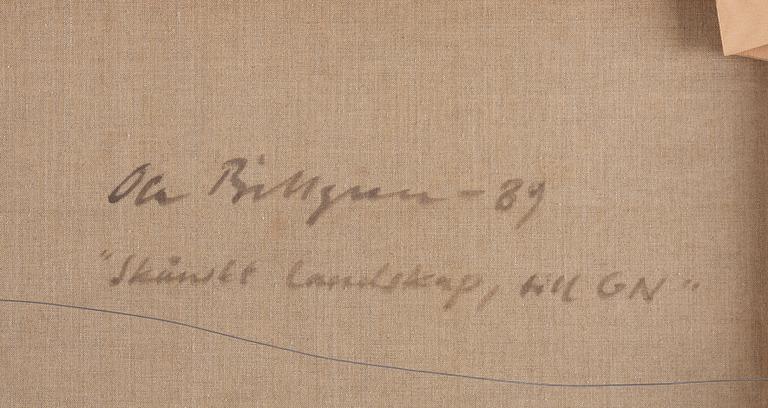 Ola Billgren -89
"Skånskt landskap, till GN"